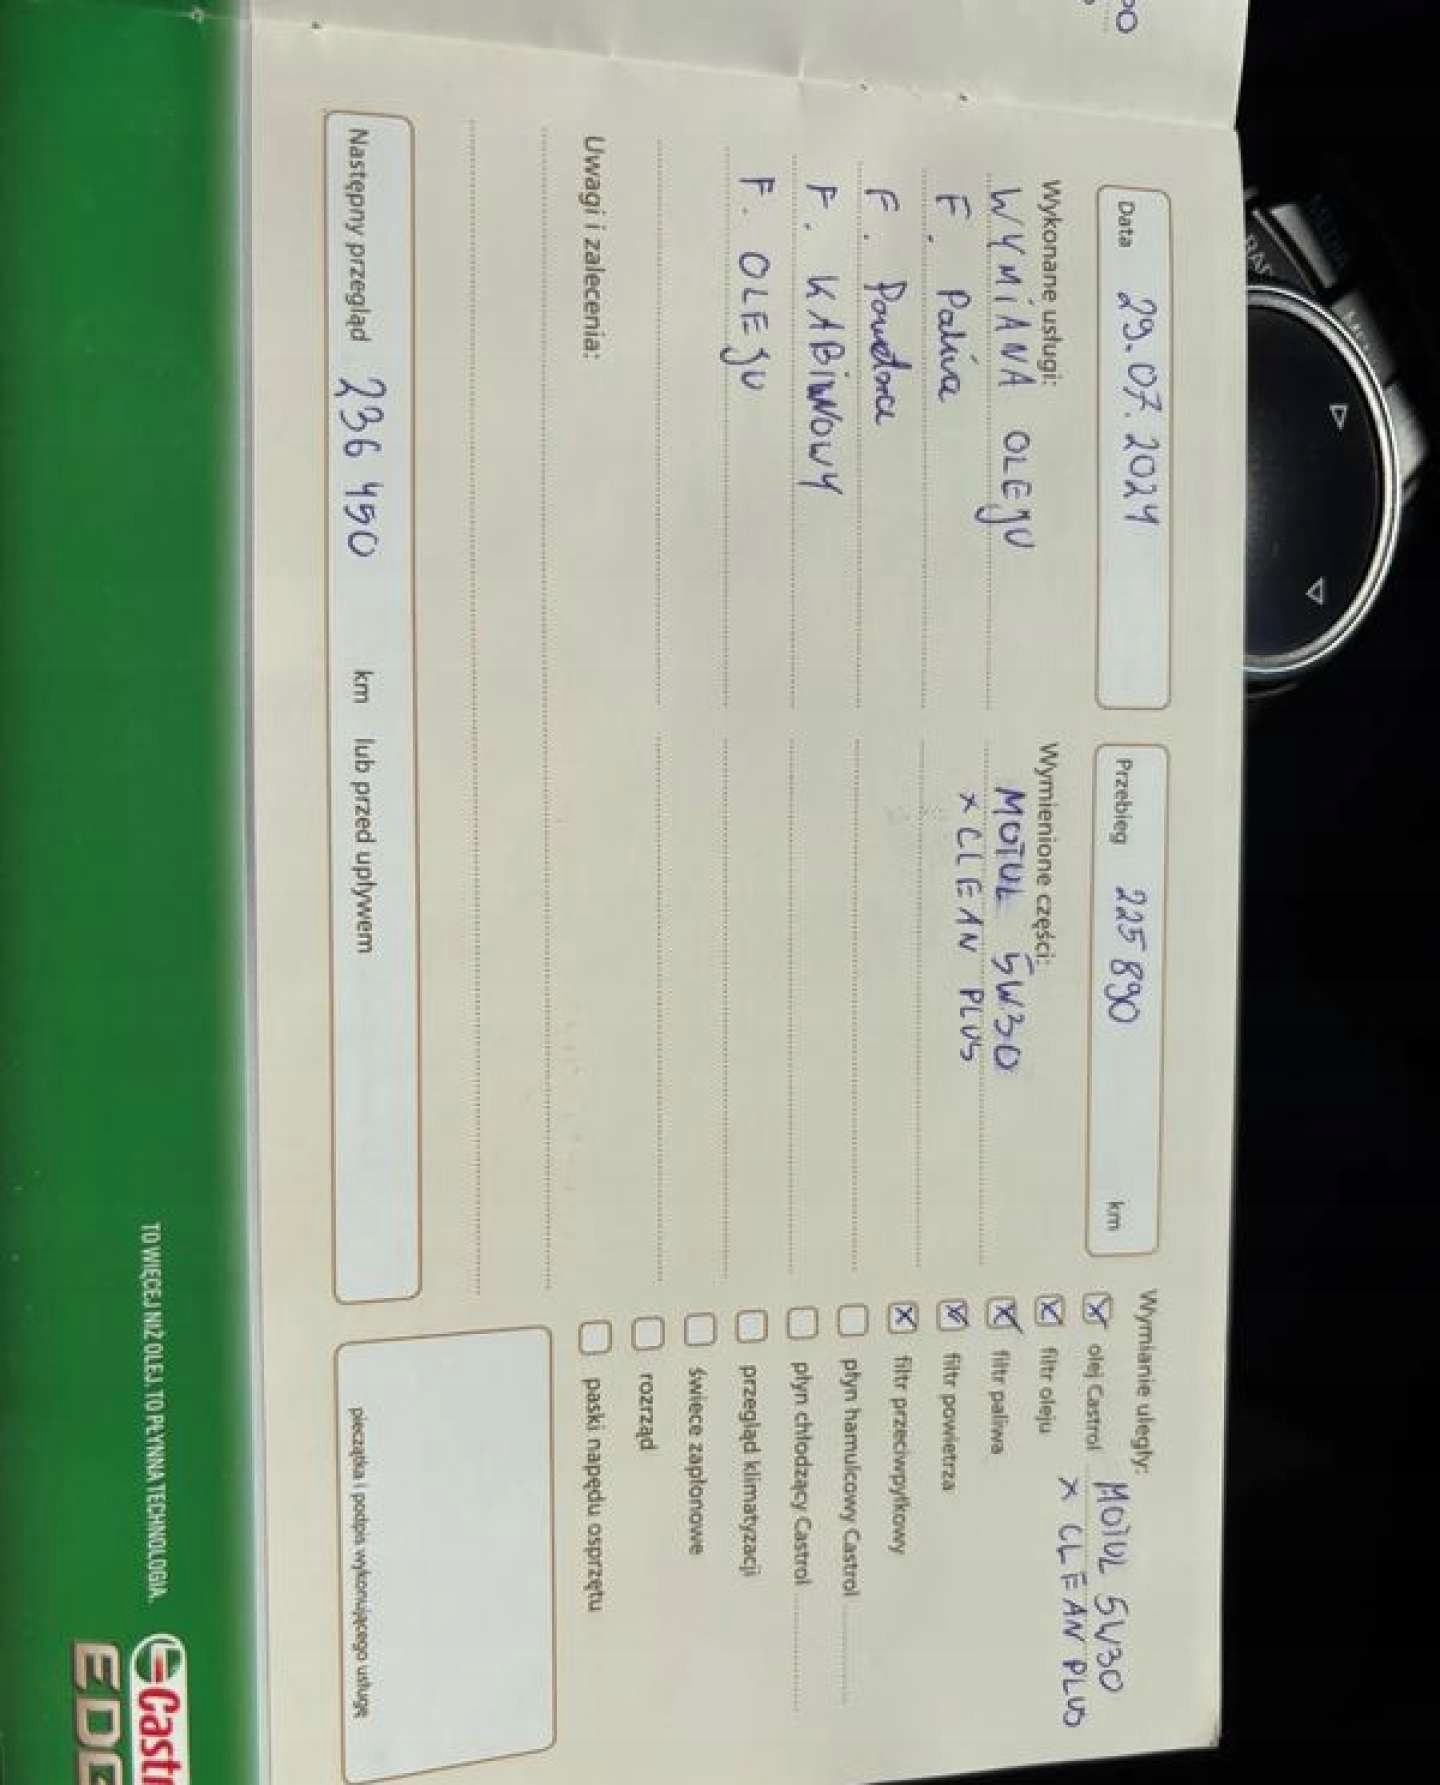 Data 29.07.2024
Przebieg 225 890 km
Wykonane usługi:
WYMIANA OLEJU
F. Paliwa
F. Powietrza
F. KABINOWY
F. OLEJU
Wymienione części:
MOTUL 5W30
x CLEAN PLUS
Wymianie uległy:
olej Castrol MOTUL 5W30
x CLEAN PLUS
filtr oleju
filtr paliwa
filtr powietrza
filtr przeciwpyłkowy
płyn hamulcowy Castrol
płyn chłodzący Castrol
przegląd klimatyzacji
świece zapłonowe
rozrząd
paski napędu osprzętu
Uwagi i zalecenia:
Następny przegląd 236 450 km lub przed upływem
pieczątka i podpis wykonującego usługę
TO WIĘCEJ NIŻ OLEJ. TO PŁYNNA TECHNOLOGIA.
Castr
EDG